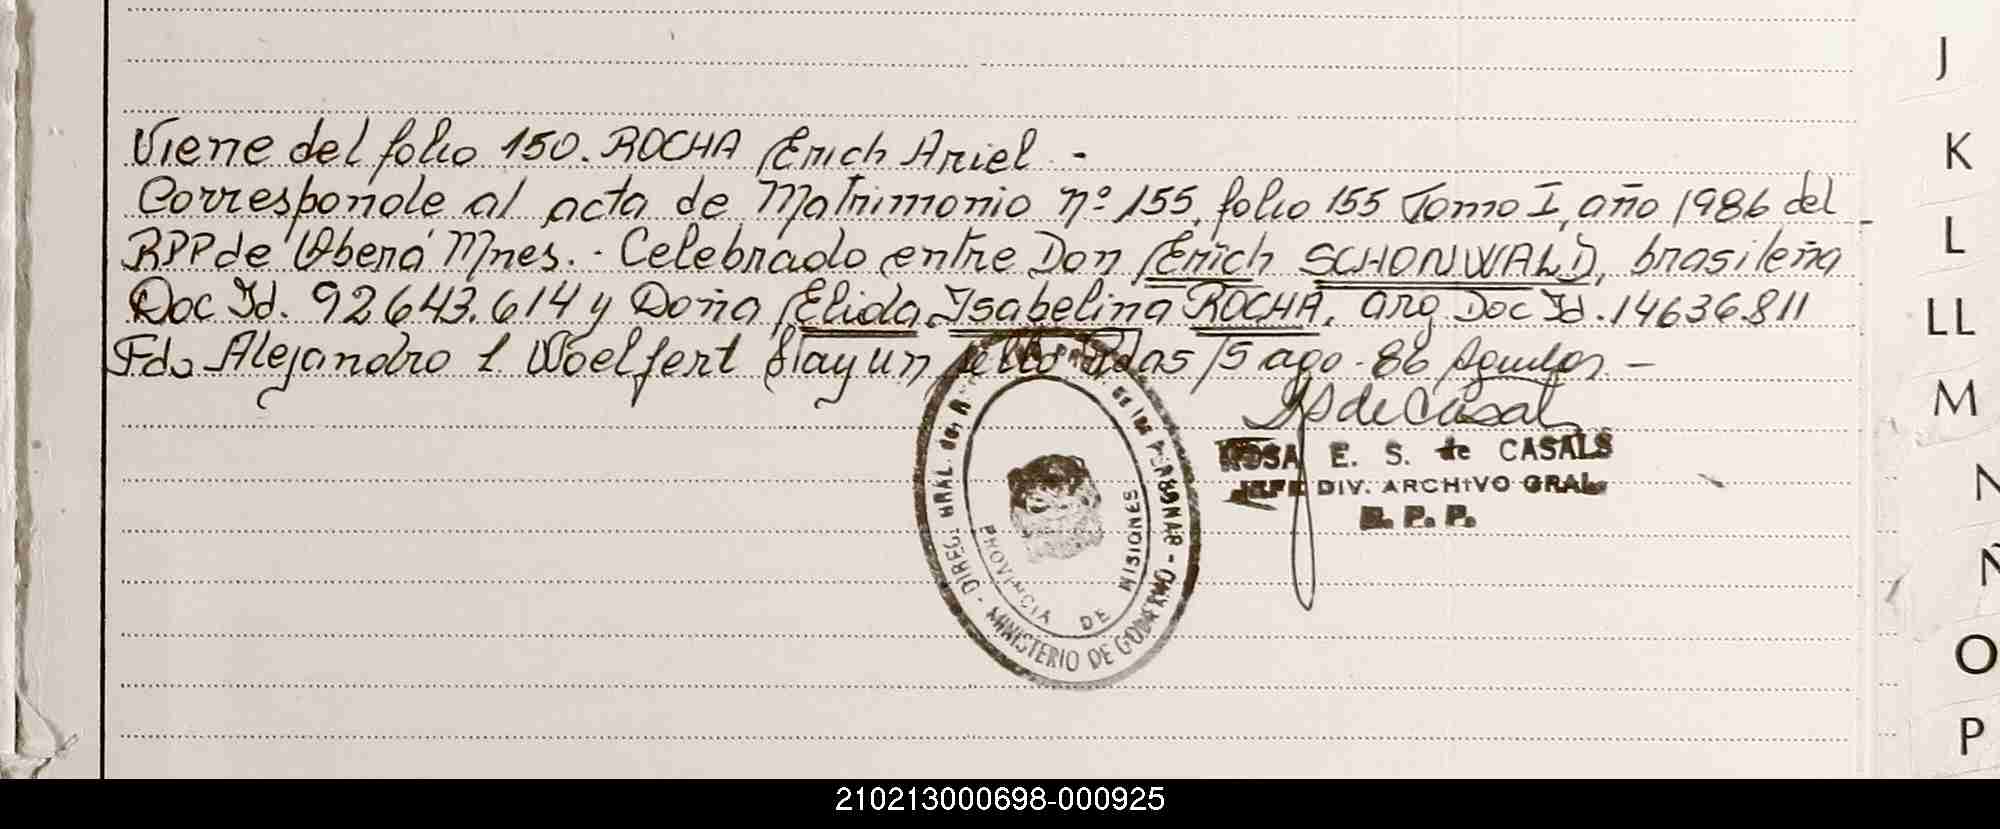 Viene del folio 150. ROCHA Erich Ariel. -
Corresponde al acta de Matrimonio nº 155, folio 155 Tomo I, año 1986 del
RPP de Oberá Mnes. - Celebrado entre Don Erich SCHONWALD, brasileña
Doc Id. 92643.614 y Doña Elida Isabelina ROCHA, arg Doc Id. 14636811
Fdo Alejandro L Woelfert Hay un sello Pdas 15 ago - 86 -
ROSA E. S. de CASALS
JEFE DIV. ARCHIVO GRAL
R. P. P.
DIREC. GRAL. de las PERSONAS - MINISTERIO DE GOBIERNO -
PROVINCIA DE MISIONES
J
K
L
LL
M
N
Ñ
O
P
210213000698-000925